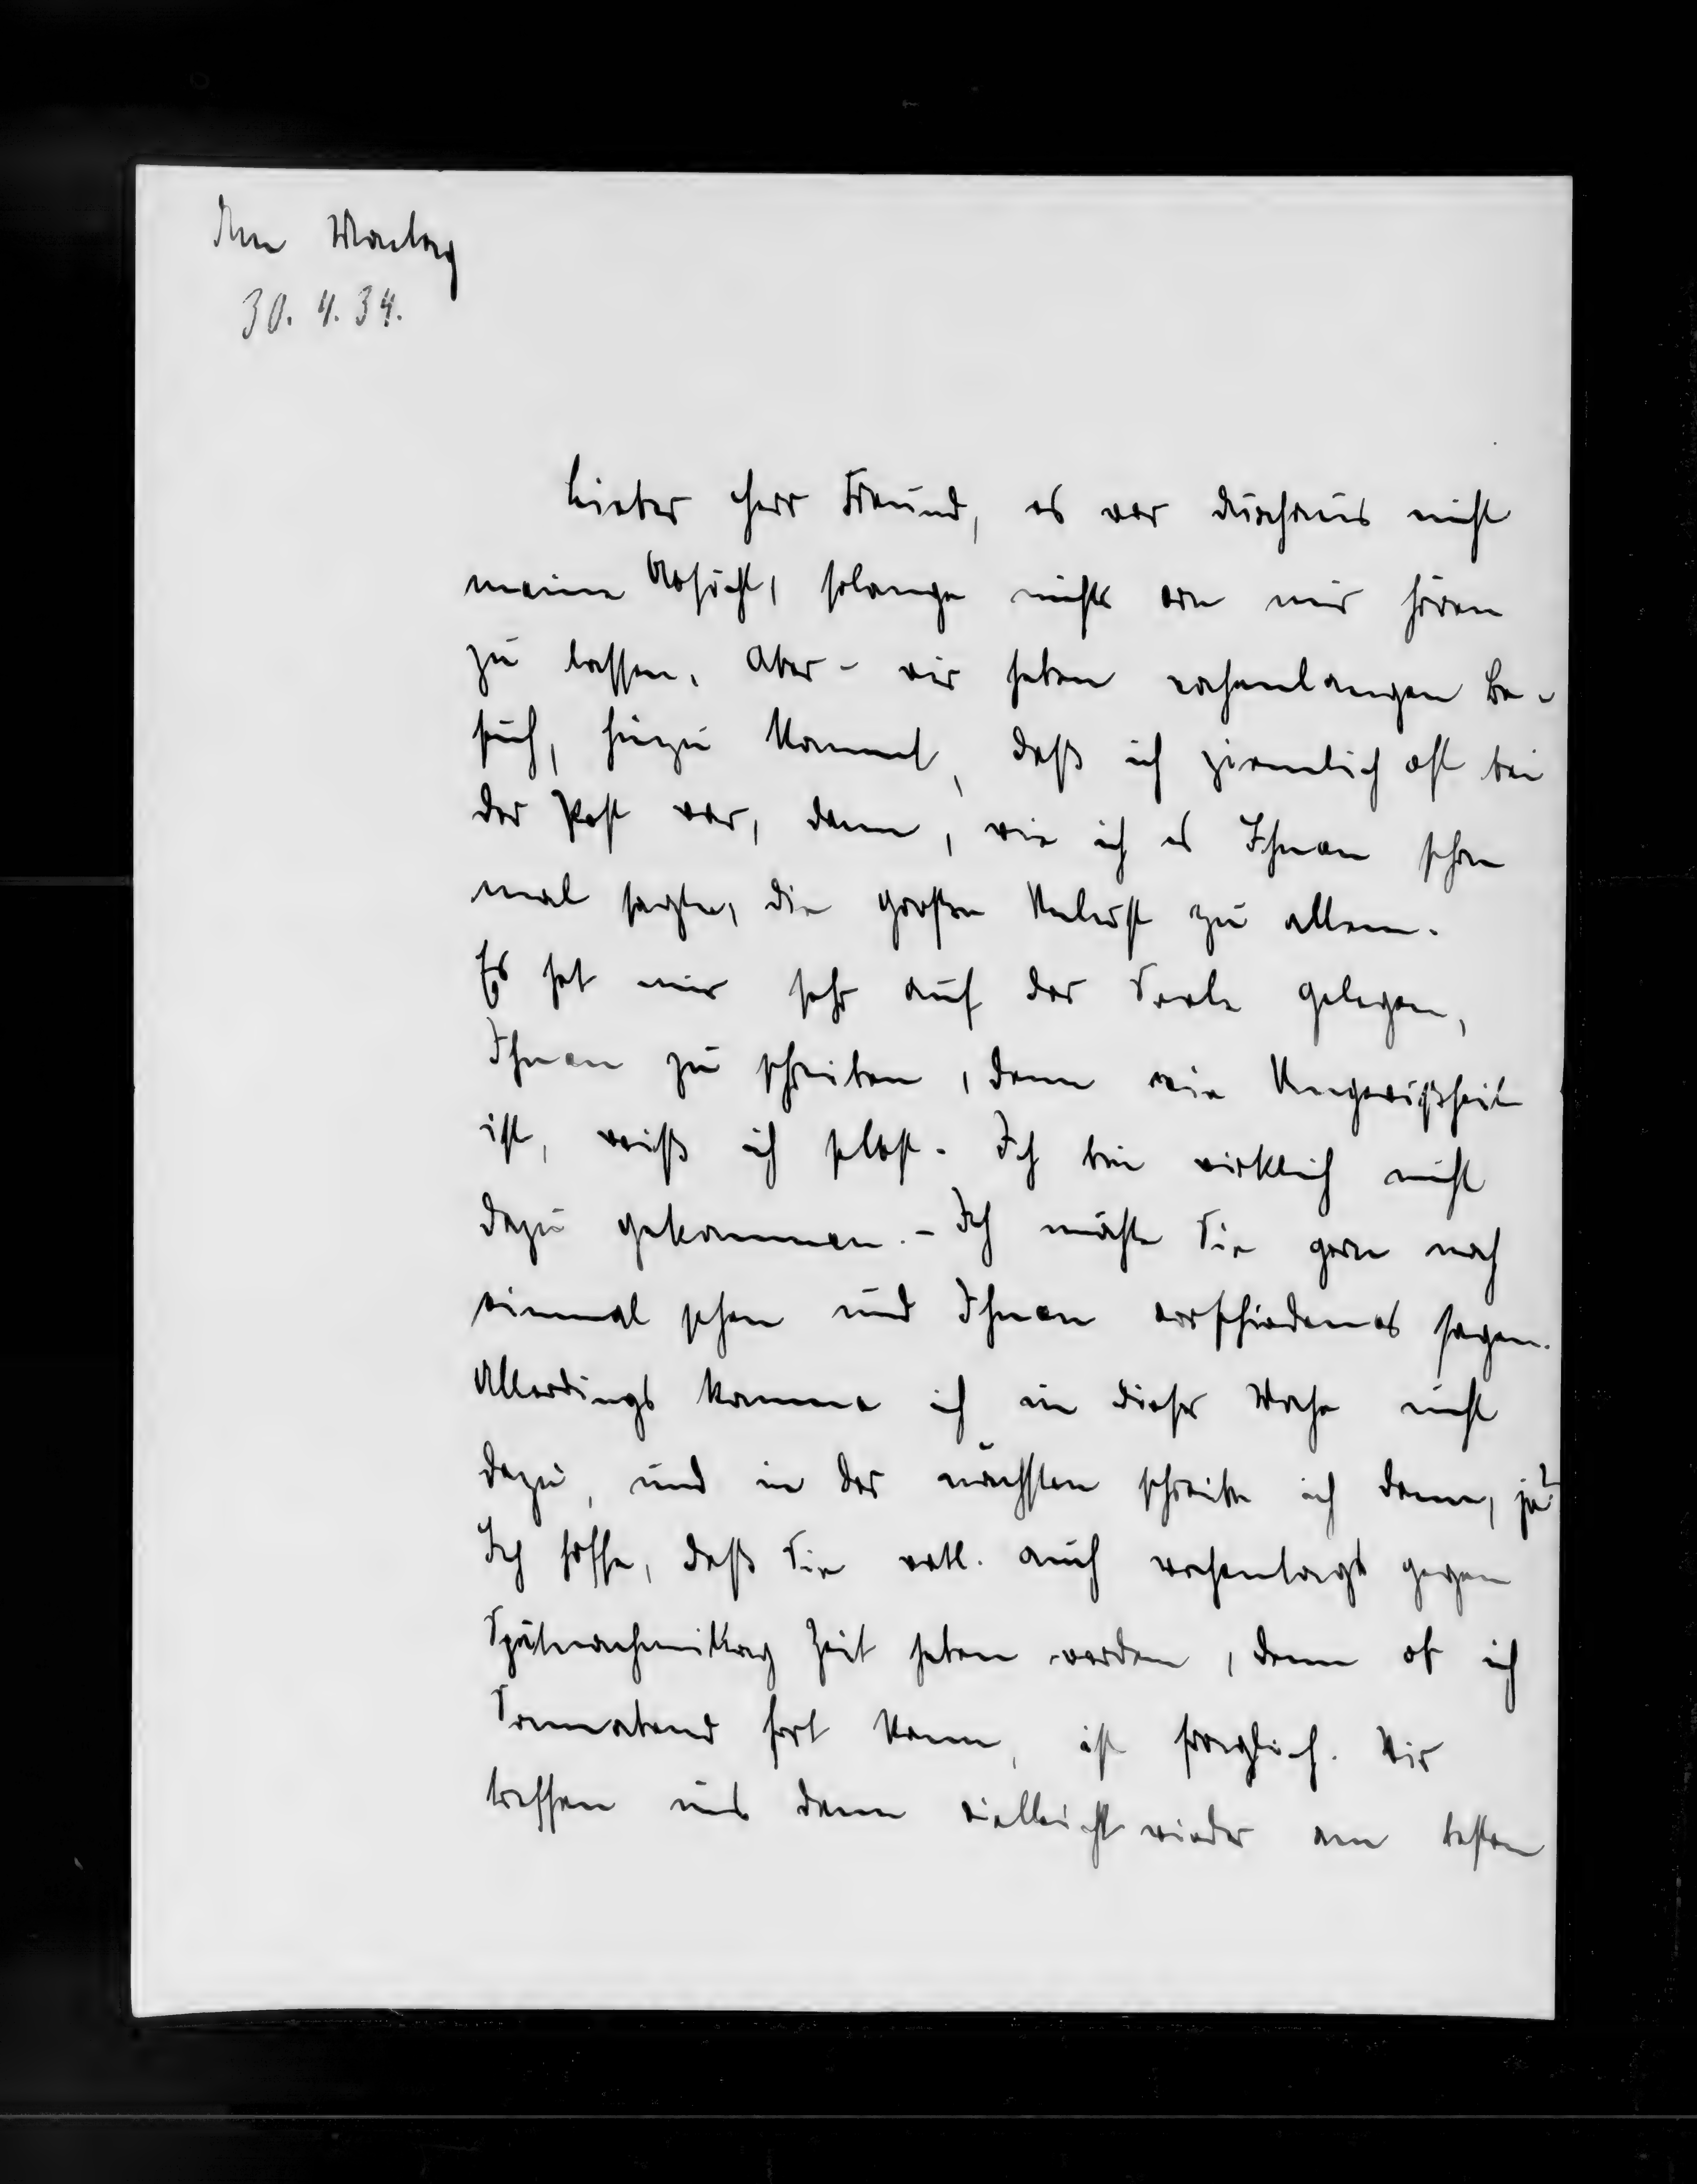 Am Montag
30. 4. 34.
Lieber Herr Freund, es war durchaus nicht
meine Absicht, solange nichts von mir hören
zu lassen. Aber - wir haben wochenlangen Be-
such, hinzu kommt, daß ich ziemlich oft bei
der Post war, dann, wie ich es Ihnen schon
mal sagte, die große Unlust zu allem.
Es hat mir sehr auf der Seele gelegen,
Ihnen zu schreiben, denn wie Ungewißheit
ist, weiß ich selbst. Ich bin wirklich nicht
dazu gekommen. - Ich möchte Sie gern noch
einmal sehen und Ihnen verschiedenes sagen.
Allerdings komme ich in dieser Woche nicht
dazu, und in der nächsten schreibe ich dann, ja?
Ich hoffe, daß Sie evtl. auch wochentags gegen
Spätnachmittag Zeit haben werden, denn ob ich
Sonnabend fort kann, ist fraglich. Wir
treffen uns dann vielleicht wieder am besten